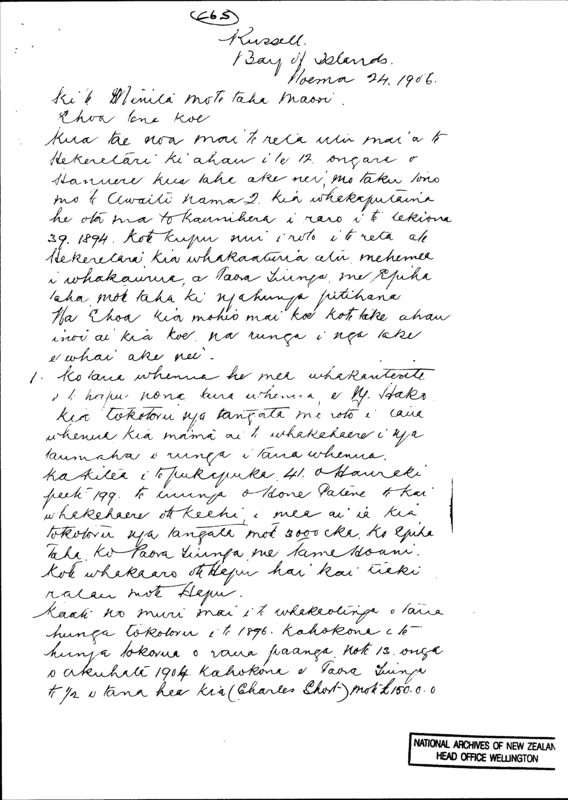 C65
Russell.
Bay of Islands.
Noema 24. 1906.
Ki te Minita mo te taha Maori.
Ehoa tena koe
Kua tae noa mai te reta utu mai a te
Hekeretari ki ahau i te 12 ongara o
Hanuere kua taha ake nei, mo taku tono
mo te Awaiti nama 2. kia whakaputaina
he ota ma to kaunihera i raro i te tekiona
39. 1894. Kote kupu nui i roto i te reta ate
Hekeretari kia whakaaturia atu, mehemea
i whakaurua, a Paora Tiunga, me Epiha
taha, mote taha ki ngahunga pitihana
Na Ehoa kia mohio mai koe kote take ahau
inoi ai kia koe, na runga i nga take
e whai ake nei.
1. Ko taua whenua he mea whakatu
o te hapu nona taua whenua, e Ng. Hako
kia tokotoru nga tangata me roto i taua
whenua kia mama ai te whakahaere i nga
taumaha o runga i taua whenua.
Ka kitea i te pukapuka 41. o Hauraki
peeti 199. te inunga o Hone Patene te kai
whakahaere ote keehi, i mea ai ia kia
tokotoru nga tangata mote 3000 eka, ko Epiha
Taha, ko Paora Tiunga me Tame Hoani.
Kote whakaaro ote Hapu hai kai tieki
ratau mote Hapu.
Kaati no muri mai i te whakaotinga o taua
hunga tokotoru i te 1896. kahokona e te
hunga tokorua o raua paanga, note 13. onga
o Akuhata 1904 kahokona e Paora Tiunga
te 1/2 o tana hea kia (Charles Short) mote £150.0.0
NATIONAL ARCHIVES OF NEW ZEALAN
HEAD OFFICE WELLINGTON